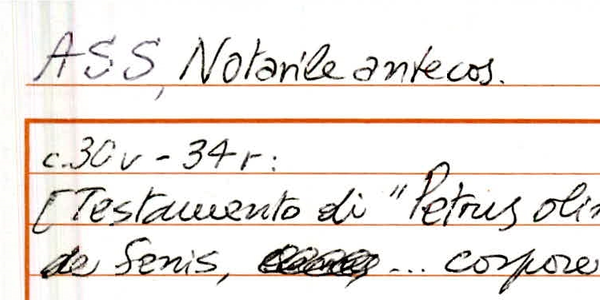 ASS, Notarile antecos.
c.30v - 34r:
[Testamento di "Petrus olim
de Senis, ... corpore